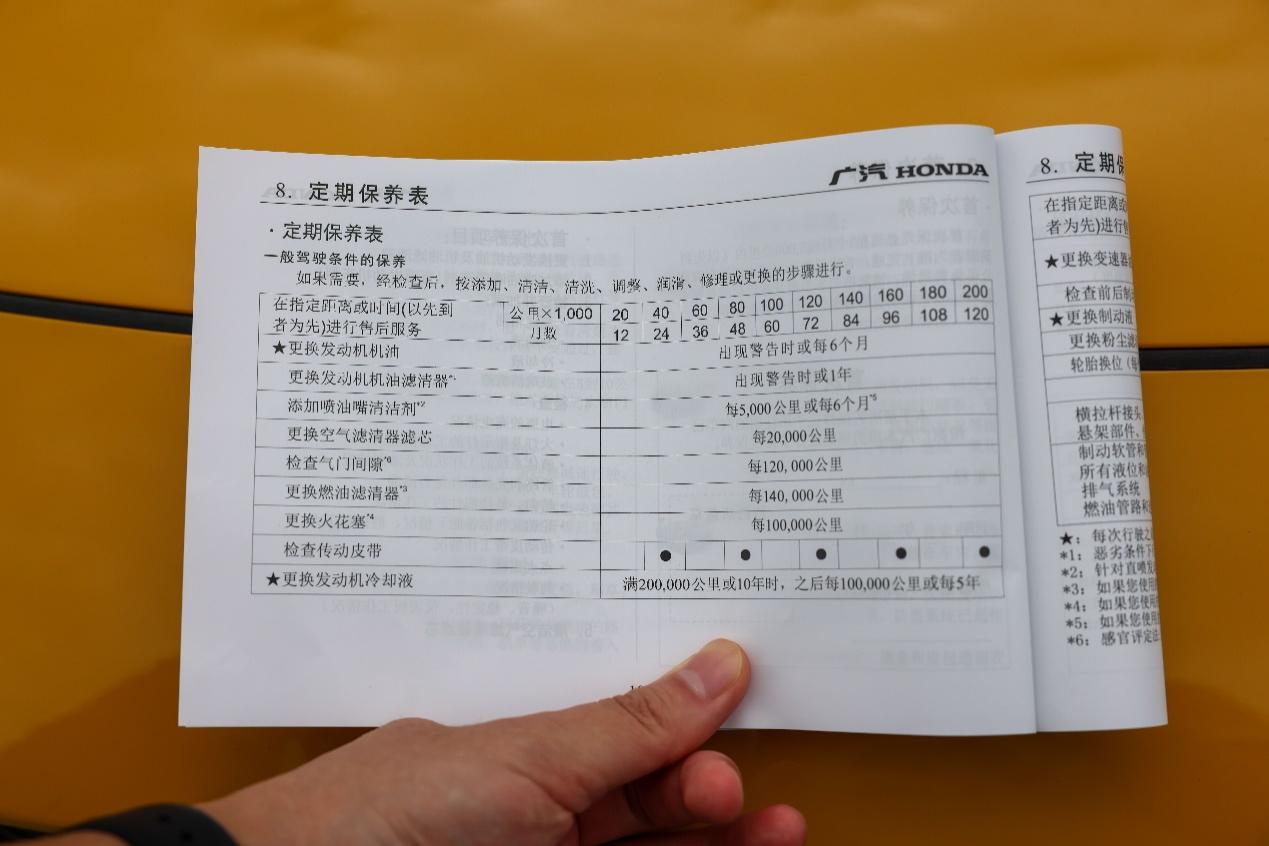 8. 定期保养表
广汽 HONDA
· 定期保养表
一般驾驶条件的保养
如果需要，经检查后，按添加、清洁、清洗、调整、润滑、修理或更换的步骤进行。
在指定距离或时间(以先到者为先)进行售后服务
公里×1,000 20 40 60 80 100 120 140 160 180 200
月数 12 24 36 48 60 72 84 96 108 120
★更换发动机机油 出现警告时或每6个月
更换发动机机油滤清器*1 出现警告时或1年
添加喷油嘴清洁剂*2 每5,000公里或每6个月*5
更换空气滤清器滤芯 每20,000公里
检查气门间隙*6 每120,000公里
更换燃油滤清器*3 每140,000公里
更换火花塞*4 每100,000公里
检查传动皮带 ● ● ● ● ●
★更换发动机冷却液 满200,000公里或10年时，之后每100,000公里或每5年
8. 定期
在指定距离或
者为先)进行
★更换变速器
检查前后制
★更换制动液
更换粉尘滤
轮胎换位（每
横拉杆接头、
悬架部件、
制动软管和
所有液位和
排气系统
燃油管路和
★： 每次行驶之
*1： 恶劣条件下
*2： 针对直喷发
*3： 如果您使用
*4： 如果您使用
*5： 如果您使用
*6： 感官评定法